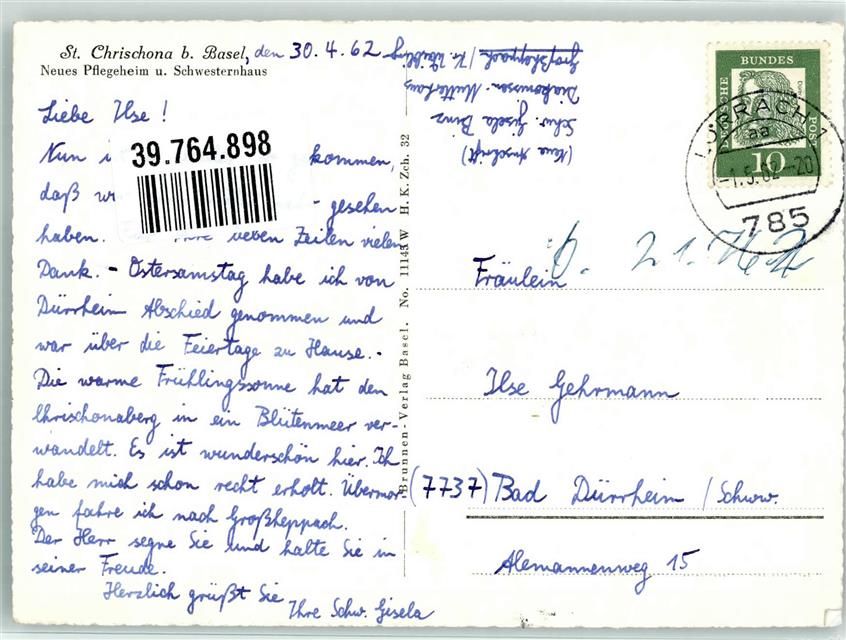 St. Chrischona b. Basel, den 30.4.62
Neues Pflegeheim u. Schwesternhaus
Liebe Ilse!
Nun i kommen,
daß w - gesehen
haben. Ihre lieben Zeilen vielen
Dank. - Ostersamstag habe ich von
Dürrheim Abschied genommen und
war über die Feiertage zu Hause. -
Die warme Frühlingssonne hat den
Chrischonaberg in ein Blütenmeer ver-
wandelt. Es ist wunderschön hier. Ich
habe mich schon recht erholt. Übermor-
gen fahre ich nach Großheppach.
Der Herr segne Sie und halte Sie in
seiner Freude.
Herzlich grüßt Sie
Ihre Schw. Gisela
39.764.898
Brunnen-Verlag Basel. No. 11143 W H. K. Zch. 32
(Neue Anschrift)
Schw. Gisela Benz
Diakonissen-Mutterhaus
Großheppach / Kr. Waiblg
DEUTSCHE BUNDESPOST
10
LÖRRACH 1
aa
-1.5.62-20
785
Fräulein
Ilse Gehrmann
(7737) Bad Dürrheim / Schww.
Alemannenweg 15